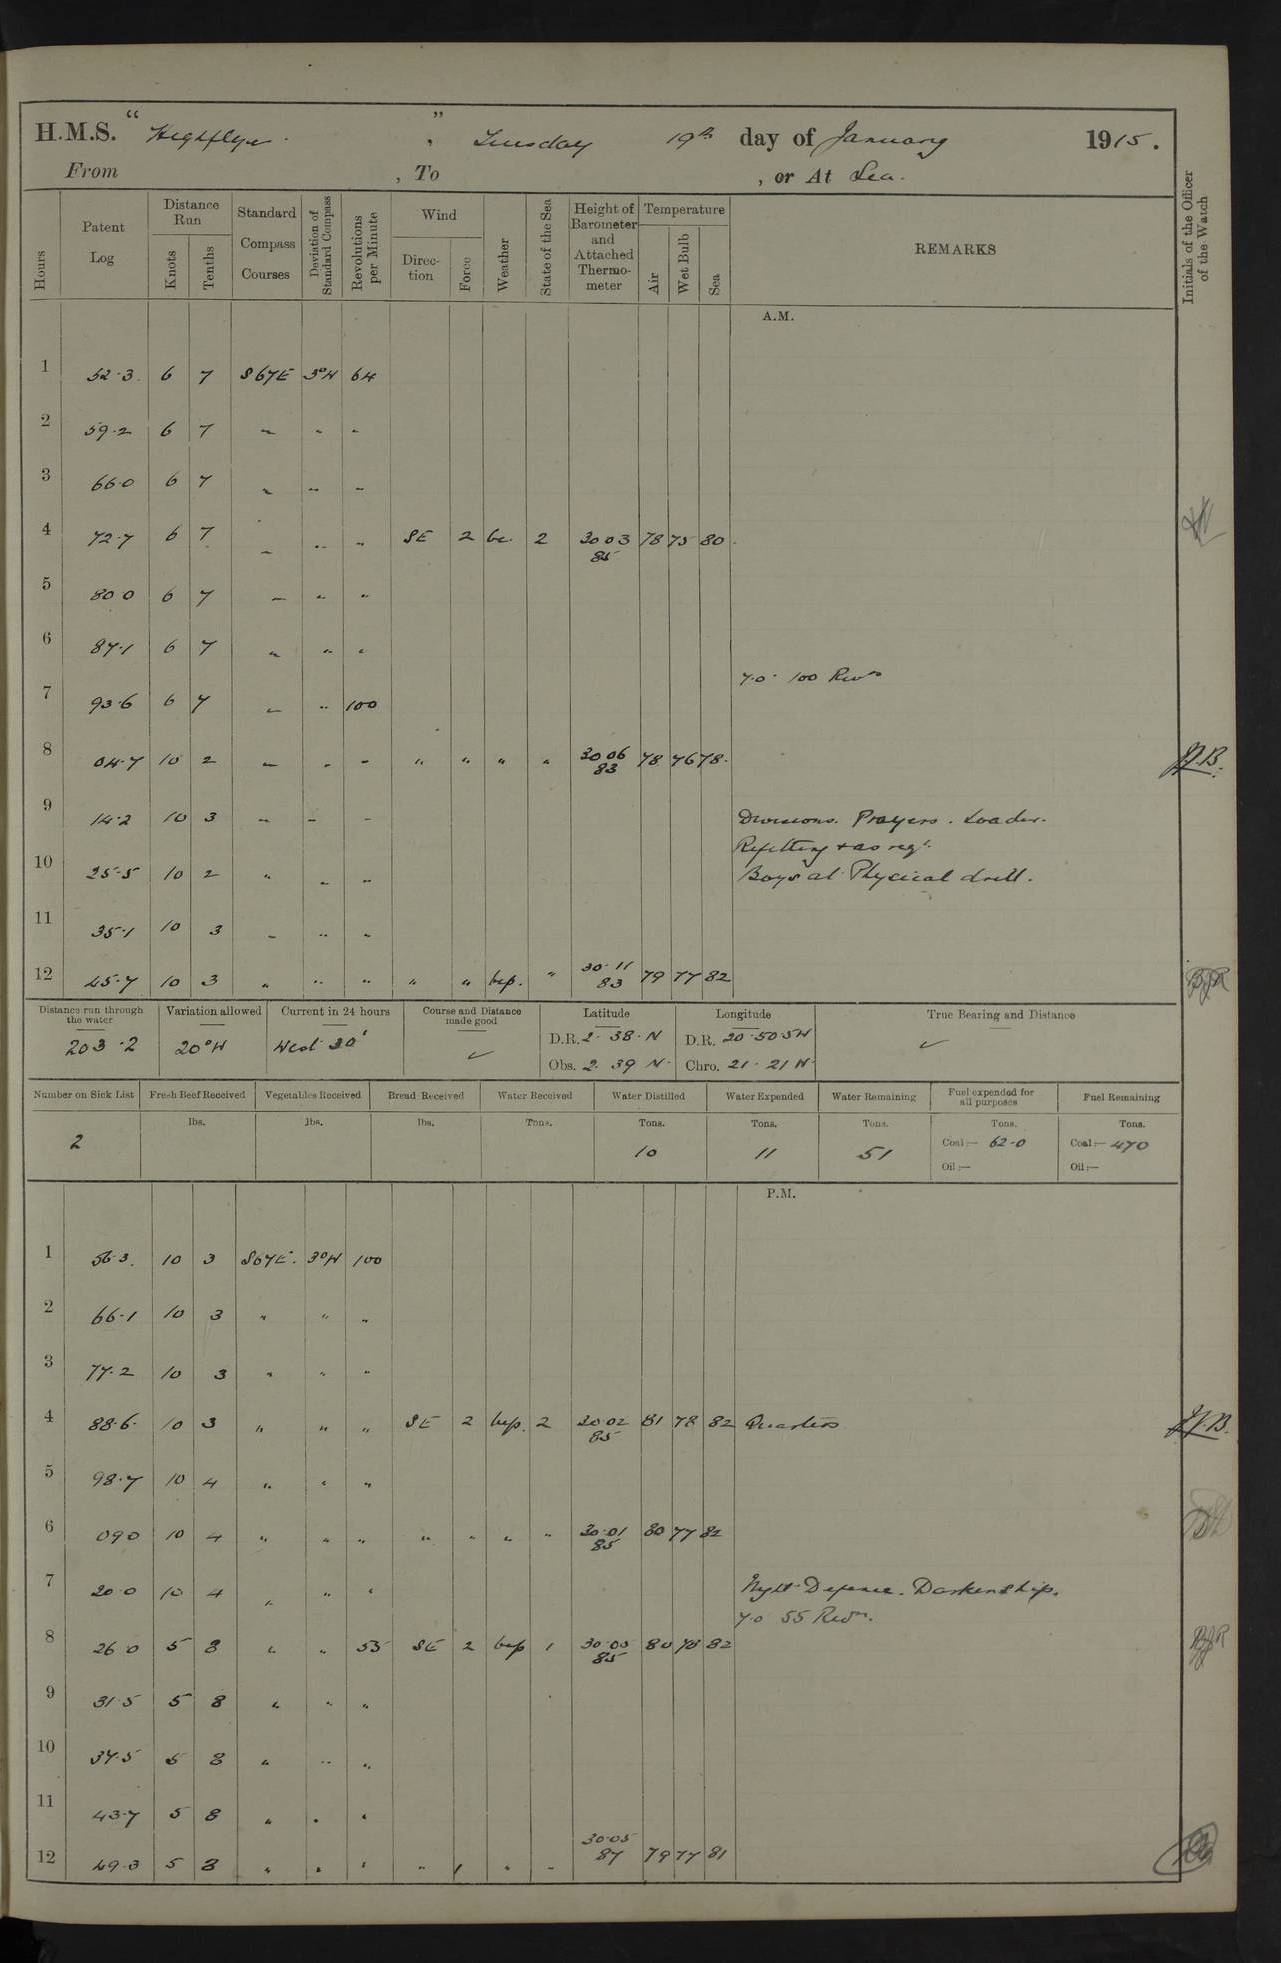 H.M.S. "Highflyer" , Tuesday 19th day of January 1915.
From , To , or At Sea.
Hours
Patent Log
Distance Run
Knots
Tenths
Standard Compass Courses
Deviation of Standard Compass
Revolutions per Minute
Wind
Direction
Force
Weather
State of the Sea
Height of Barometer and Attached Thermometer
Temperature
Air
Wet Bulb
Sea
REMARKS
Initials of the Officer of the Watch
A.M.
1 52.3 6 7 S67E 3°W 64
2 59.2 6 7 " " "
3 66.0 6 7 " " "
4 72.7 6 7 " " " SE 2 bc. 2 30 03 78 75 80
85
5 80 0 6 7 " " "
6 87.1 6 7 " " "
7.0. 100 Revns
7 93.6 6 7 " " 100
8 04.7 10 2 " " " " " " " 30 06 78 76 78
83
9 14.2 10 3 " " " Divisions. Prayers. Loader.
Refitting + as reqr.
10 25.5 10 2 " " " Boys at Physical drill.
11 35.1 10 3 " " "
12 45.7 10 3 " " " " " bcp. " 30.11 79 77 82
83
Distance run through the water
203.2
Variation allowed
20°W
Current in 24 hours
West 30'
Course and Distance made good
Latitude
D.R. 2. 38. N
Obs. 2. 39 N
Longitude
D.R. 20.50.5W
Chro. 21. 21 W
True Bearing and Distance
Number on Sick List
2
Fresh Beef Received
lbs.
Vegetables Received
lbs.
Bread Received
lbs.
Water Received
Tons.
Water Distilled
Tons.
10
Water Expended
Tons.
11
Water Remaining
Tons.
51
Fuel expended for all purposes
Tons.
Coal:— 62.0
Oil:—
Fuel Remaining
Tons.
Coal:— 470
Oil:—
P.M.
1 56.3. 10 3 S67E. 3°W 100
2 66.1 10 3 " " "
3 77.2 10 3 " " "
4 88.6. 10 3 " " " SE 2 bcp. 2 30 02 81 78 82 Quarters
85
5 98.7 10 4 " " "
6 09 0 10 4 " " " " " " " 30.01 80 77 82
85
7 20 0 10 4 " " " Night Defence. Darken Ship.
7.0 55 Revns.
8 26 0 5 8 " " 55 SE 2 bcp 1 30.00 80 78 82
85
9 31.5 5 8 " " "
10 37.5 5 8 " " "
11 43.7 5 8 " " "
12 49.3 5 8 " " " " 1 " " 30.05 79 77 81
87